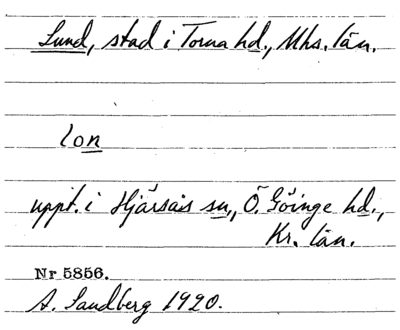 Lund, stad i Torna hd., Mhs. län.
lon
uppt. i Hjärsås sn., Ö. Göinge hd.,
Kr. län.
Nr 5856.
A. Sandberg 1920.